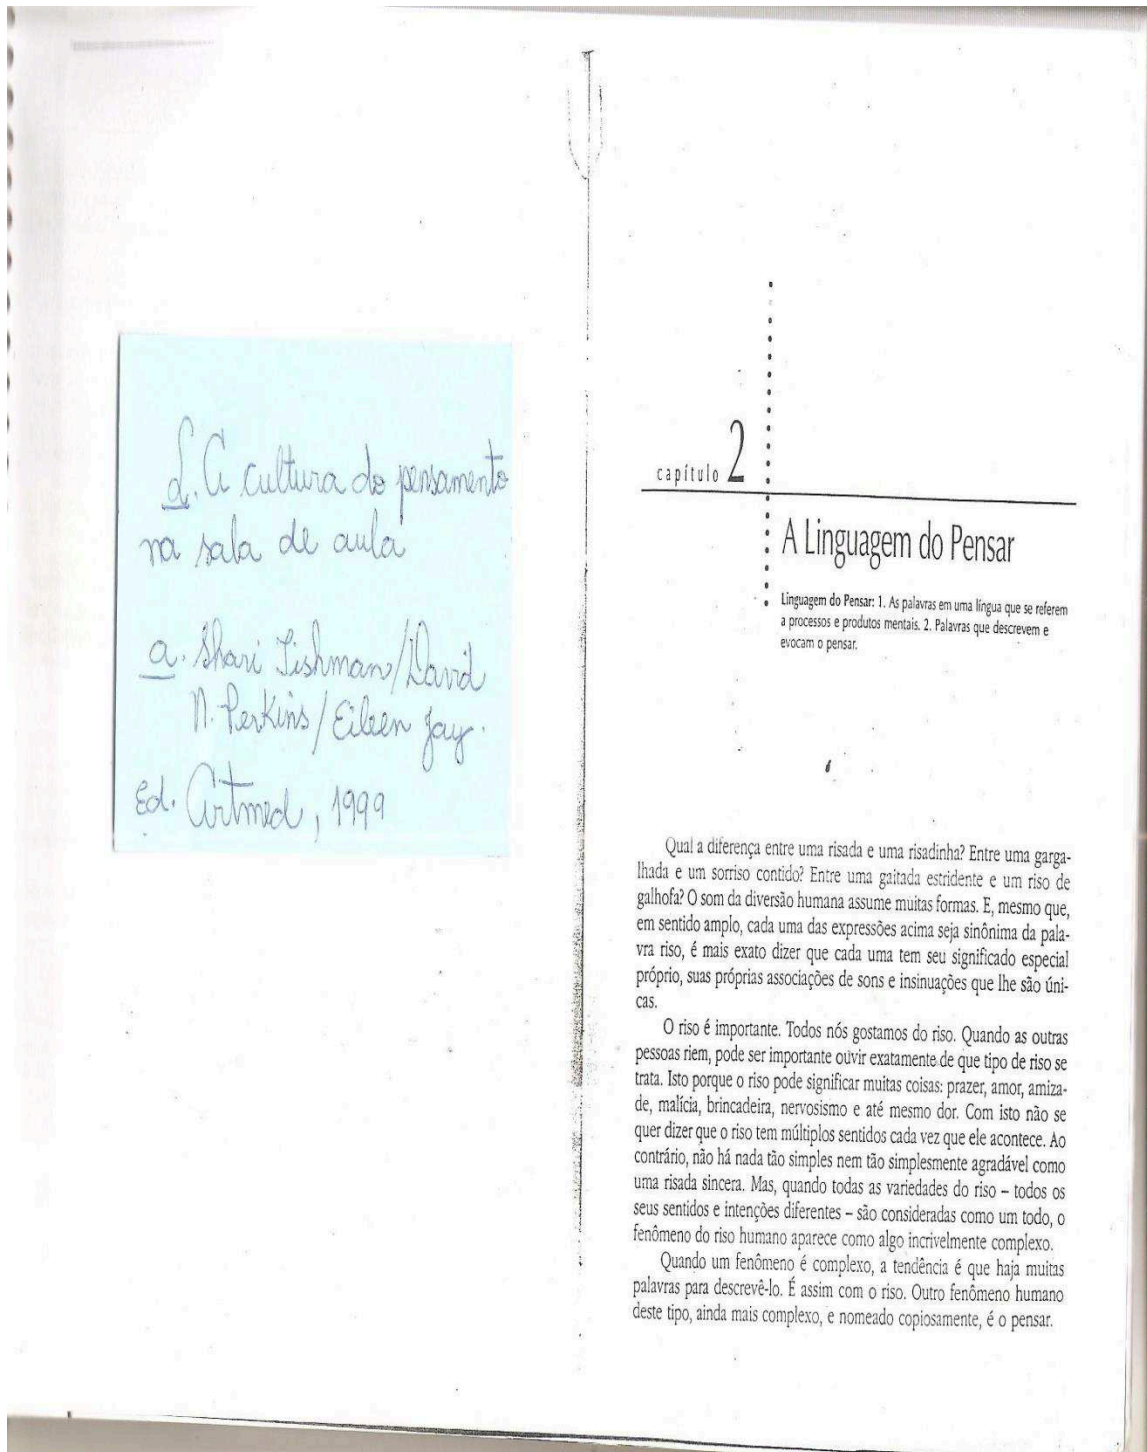 L. A cultura do pensamento
na sala de aula
a. Shari Tishman/David
N. Perkins/Eileen Jay.
Ed. Artmed, 1999
capítulo 2
A Linguagem do Pensar
Linguagem do Pensar: 1. As palavras em uma língua que se referem
a processos e produtos mentais. 2. Palavras que descrevem e
evocam o pensar.
Qual a diferença entre uma risada e uma risadinha? Entre uma garga-
lhada e um sorriso contido? Entre uma gaitada estridente e um riso de
galhofa? O som da diversão humana assume muitas formas. E, mesmo que,
em sentido amplo, cada uma das expressões acima seja sinônima da pala-
vra riso, é mais exato dizer que cada uma tem seu significado especial
próprio, suas próprias associações de sons e insinuações que lhe são úni-
cas.
O riso é importante. Todos nós gostamos do riso. Quando as outras
pessoas riem, pode ser importante ouvir exatamente de que tipo de riso se
trata. Isto porque o riso pode significar muitas coisas: prazer, amor, amiza-
de, malícia, brincadeira, nervosismo e até mesmo dor. Com isto não se
quer dizer que o riso tem múltiplos sentidos cada vez que ele acontece. Ao
contrário, não há nada tão simples nem tão simplesmente agradável como
uma risada sincera. Mas, quando todas as variedades do riso – todos os
seus sentidos e intenções diferentes – são consideradas como um todo, o
fenômeno do riso humano aparece como algo incrivelmente complexo.
Quando um fenômeno é complexo, a tendência é que haja muitas
palavras para descrevê-lo. É assim com o riso. Outro fenômeno humano
deste tipo, ainda mais complexo, e nomeado copiosamente, é o pensar.